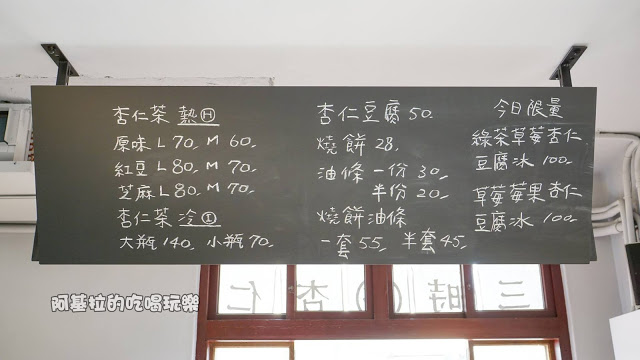 杏仁茶 熱Ⓗ
原味 L 70 M 60
紅豆 L 80 M 70
芝麻 L 80 M 70
杏仁茶 冷Ⓘ
大瓶 140 小瓶 70
杏仁豆腐 50
燒餅 28
油條 一份 30
半份 20
燒餅油條
一套 55 半套 45
今日限量
綠茶草莓杏仁
豆腐冰 100
草莓莓果杏仁
豆腐冰 100
阿基拉的吃喝玩樂
三時杏仁